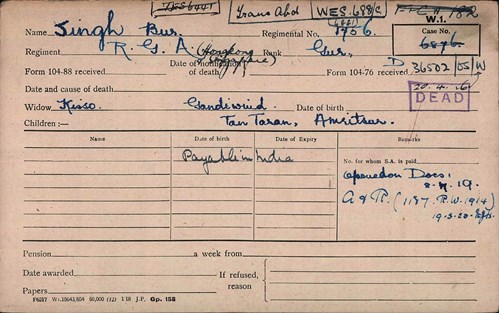 Trans Abd WES.688/C W.1.
Name Singh Bur. Regimental No. 1756. Case No. 6876.
Regiment R.G.A. (Hongkong Singapore) Rank Gnr.
Form 104-88 received Date of notification of death Form 104-76 received D 36502/05/W
Date and cause of death 20.4.16
DEAD
Widow Kisso. Gandiwind. Date of birth
Children :— Tan Taran, Amritsar.
Name Date of birth Date of Expiry Remarks
Payable in India No. for whom S.A. is paid
Opened on Docs: 8.7.19.
A & R. (1187. P.W. 1914)
19.3.20.
Pension a week from
Date awarded If refused, reason
Papers
F6217 Wt. 60,000 (12) 1 18 J.P. Gp. 158